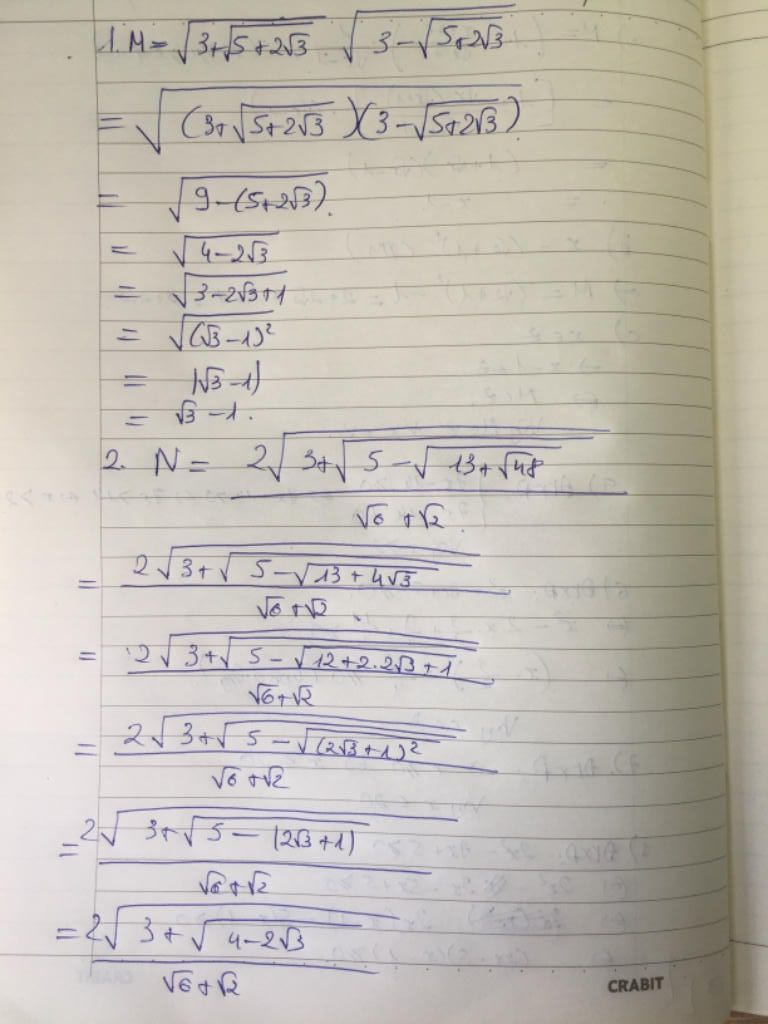 1. M = √(3+√(5+2√3)) √(3-√(5+2√3))
= √((3+√(5+2√3))(3-√(5+2√3)))
= √(9-(5+2√3)).
= √(4-2√3)
= √(3-2√3+1)
= √((√3-1)²)
= |√3-1|
= √3-1.
2. N = 2√(3+√(5-√(13+√48))) / (√6+√2)
= 2√(3+√(5-√(13+4√3))) / (√6+√2)
= 2√(3+√(5-√(12+2.2√3+1))) / (√6+√2)
= 2√(3+√(5-√((2√3+1)²))) / (√6+√2)
= 2√(3+√(5-(2√3+1))) / (√6+√2)
= 2√(3+√(4-2√3)) / (√6+√2)
CRABIT